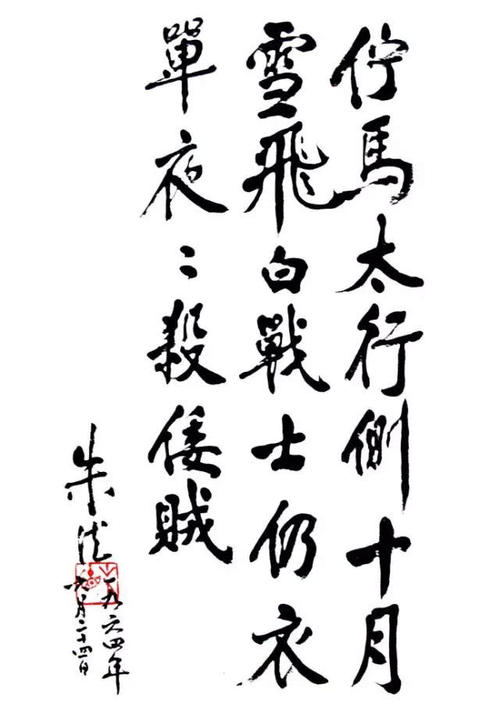 佇馬太行側十月
雪飛白戰士仍衣
單夜〻殺倭賊
朱德
一九六四年
月二十四日